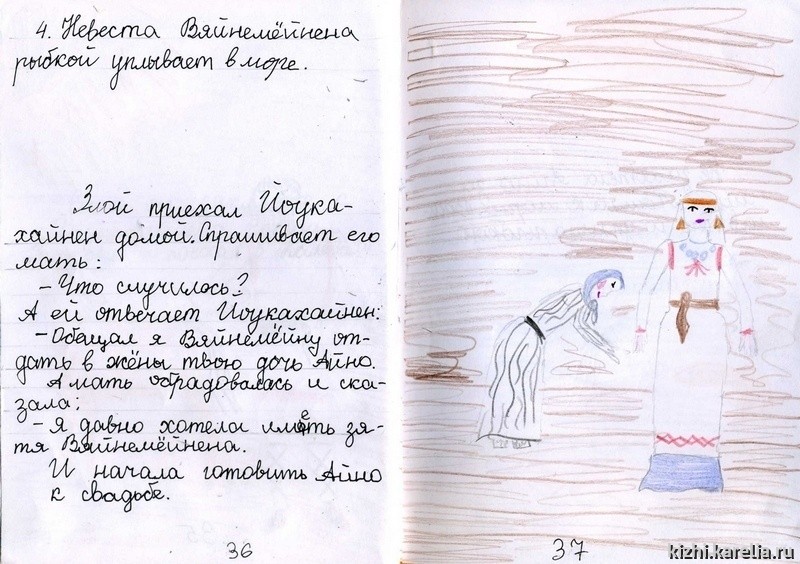 4. Невеста Вяйнемёйнена
рыбкой уплывает в море.
Злой приехал Йоука-
хайнен домой. Спрашивает его
мать:
- Что случилось?
А ей отвечает Йоукахайнен:
- Обещал я Вяйнемёйну от-
дать в жёны твою дочь Айно.
А мать обрадовалась и ска-
зала:
- Я давно хотела иметь зя-
тя Вяйнемёйнена.
И начала готовить Айно
к свадьбе.
36
37
kizhi.karelia.ru